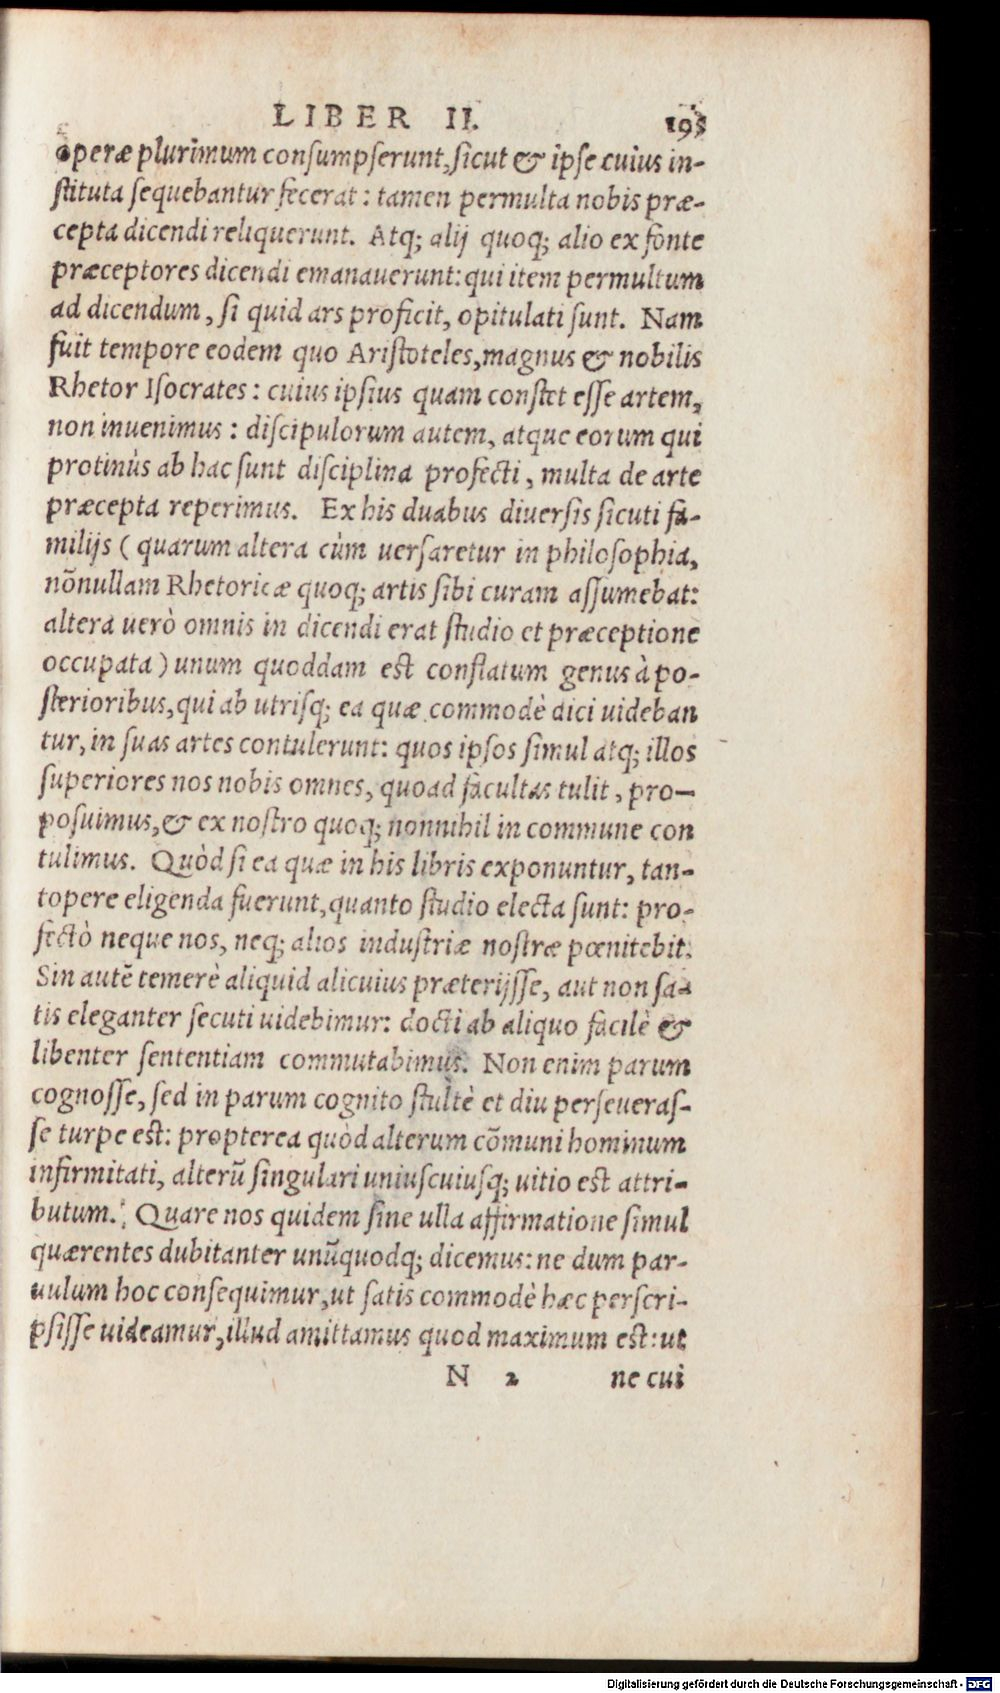 LIBER II. 195
operæ plurimum consumpserunt, sicut & ipse cuius in-
stituta sequebantur fecerat: tamen permulta nobis præ-
cepta dicendi reliquerunt. Atq; alij quoq; alio ex fonte
præceptores dicendi emanauerunt: qui item permultum
ad dicendum, si quid ars proficit, opitulati sunt. Nam
fuit tempore eodem quo Aristoteles, magnus & nobilis
Rhetor Isocrates: cuius ipsius quam constet esse artem,
non inuenimus: discipulorum autem, atque eorum qui
protinùs ab hac sunt disciplina profecti, multa de arte
præcepta reperimus. Ex his duabus diuersis sicuti fa-
milijs (quarum altera cùm uersaretur in philosophia,
nõnullam Rhetoricæ quoq; artis sibi curam assumebat:
altera uerò omnis in dicendi erat studio et præceptione
occupata) unum quoddam est conflatum genus à po-
sterioribus, qui ab utrisq; ea quæ commodè dici uideban
tur, in suas artes contulerunt: quos ipsos simul atq; illos
superiores nos nobis omnes, quoad facultas tulit, pro-
posuimus, & ex nostro quoq; nonnihil in commune con
tulimus. Quòd si ea quæ in his libris exponuntur, tan-
topere eligenda fuerunt, quanto studio electa sunt: pro-
fectò neque nos, neq; alios industriæ nostræ pœnitebit.
Sin autẽ temerè aliquid alicuius præterijsse, aut non sa-
tis eleganter secuti uidebimur: docti ab aliquo facilè &
libenter sententiam commutabimus. Non enim parum
cognosse, sed in parum cognito stultè et diu perseueras-
se turpe est: propterea quòd alterum cõmuni hominum
infirmitati, alterũ singulari uniuscuiusq; uitio est attri-
butum. Quare nos quidem sine ulla affirmatione simul
quærentes dubitanter unũquodq; dicemus: ne dum par-
uulum hoc consequimur, ut satis commodè hæc perscri-
psisse uideamur, illud amittamus quod maximum est: ut
N 2 ne cui
Digitalisierung gefördert durch die Deutsche Forschungsgemeinschaft - DFG